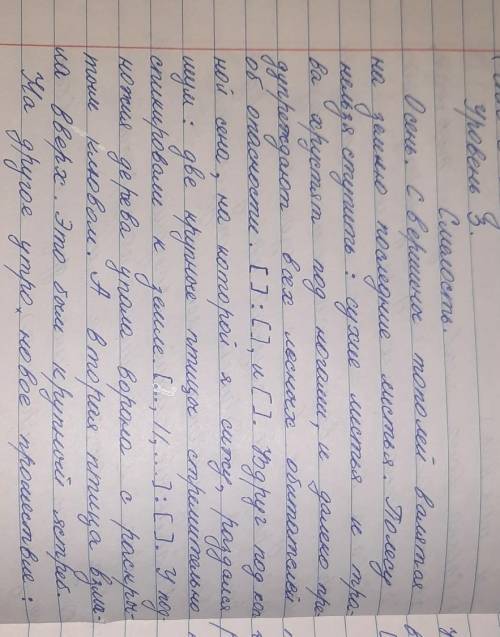 Уровень 3.
Смелость.
Осень. С вершин тополей валятся
на землю последние листья. По лесу
нельзя ступить: сухие листья и тра-
ва хрустят под ногами, и далеко пре-
дупреждают всех лесных обитателей
об опасности. [ ]: [ ], и [ ]. Вдруг под
ной сена, на которой я сижу, раздался
шум: две крупные птицы стремительно
спикировали к земле. [.., //, ..]: [ ]. У под
ножия дерева упала ворона с раскры-
тым клювом. А вторая птица взмы-
ла вверх. Это был крупный ястреб.
На другое утро, новое происшествие: